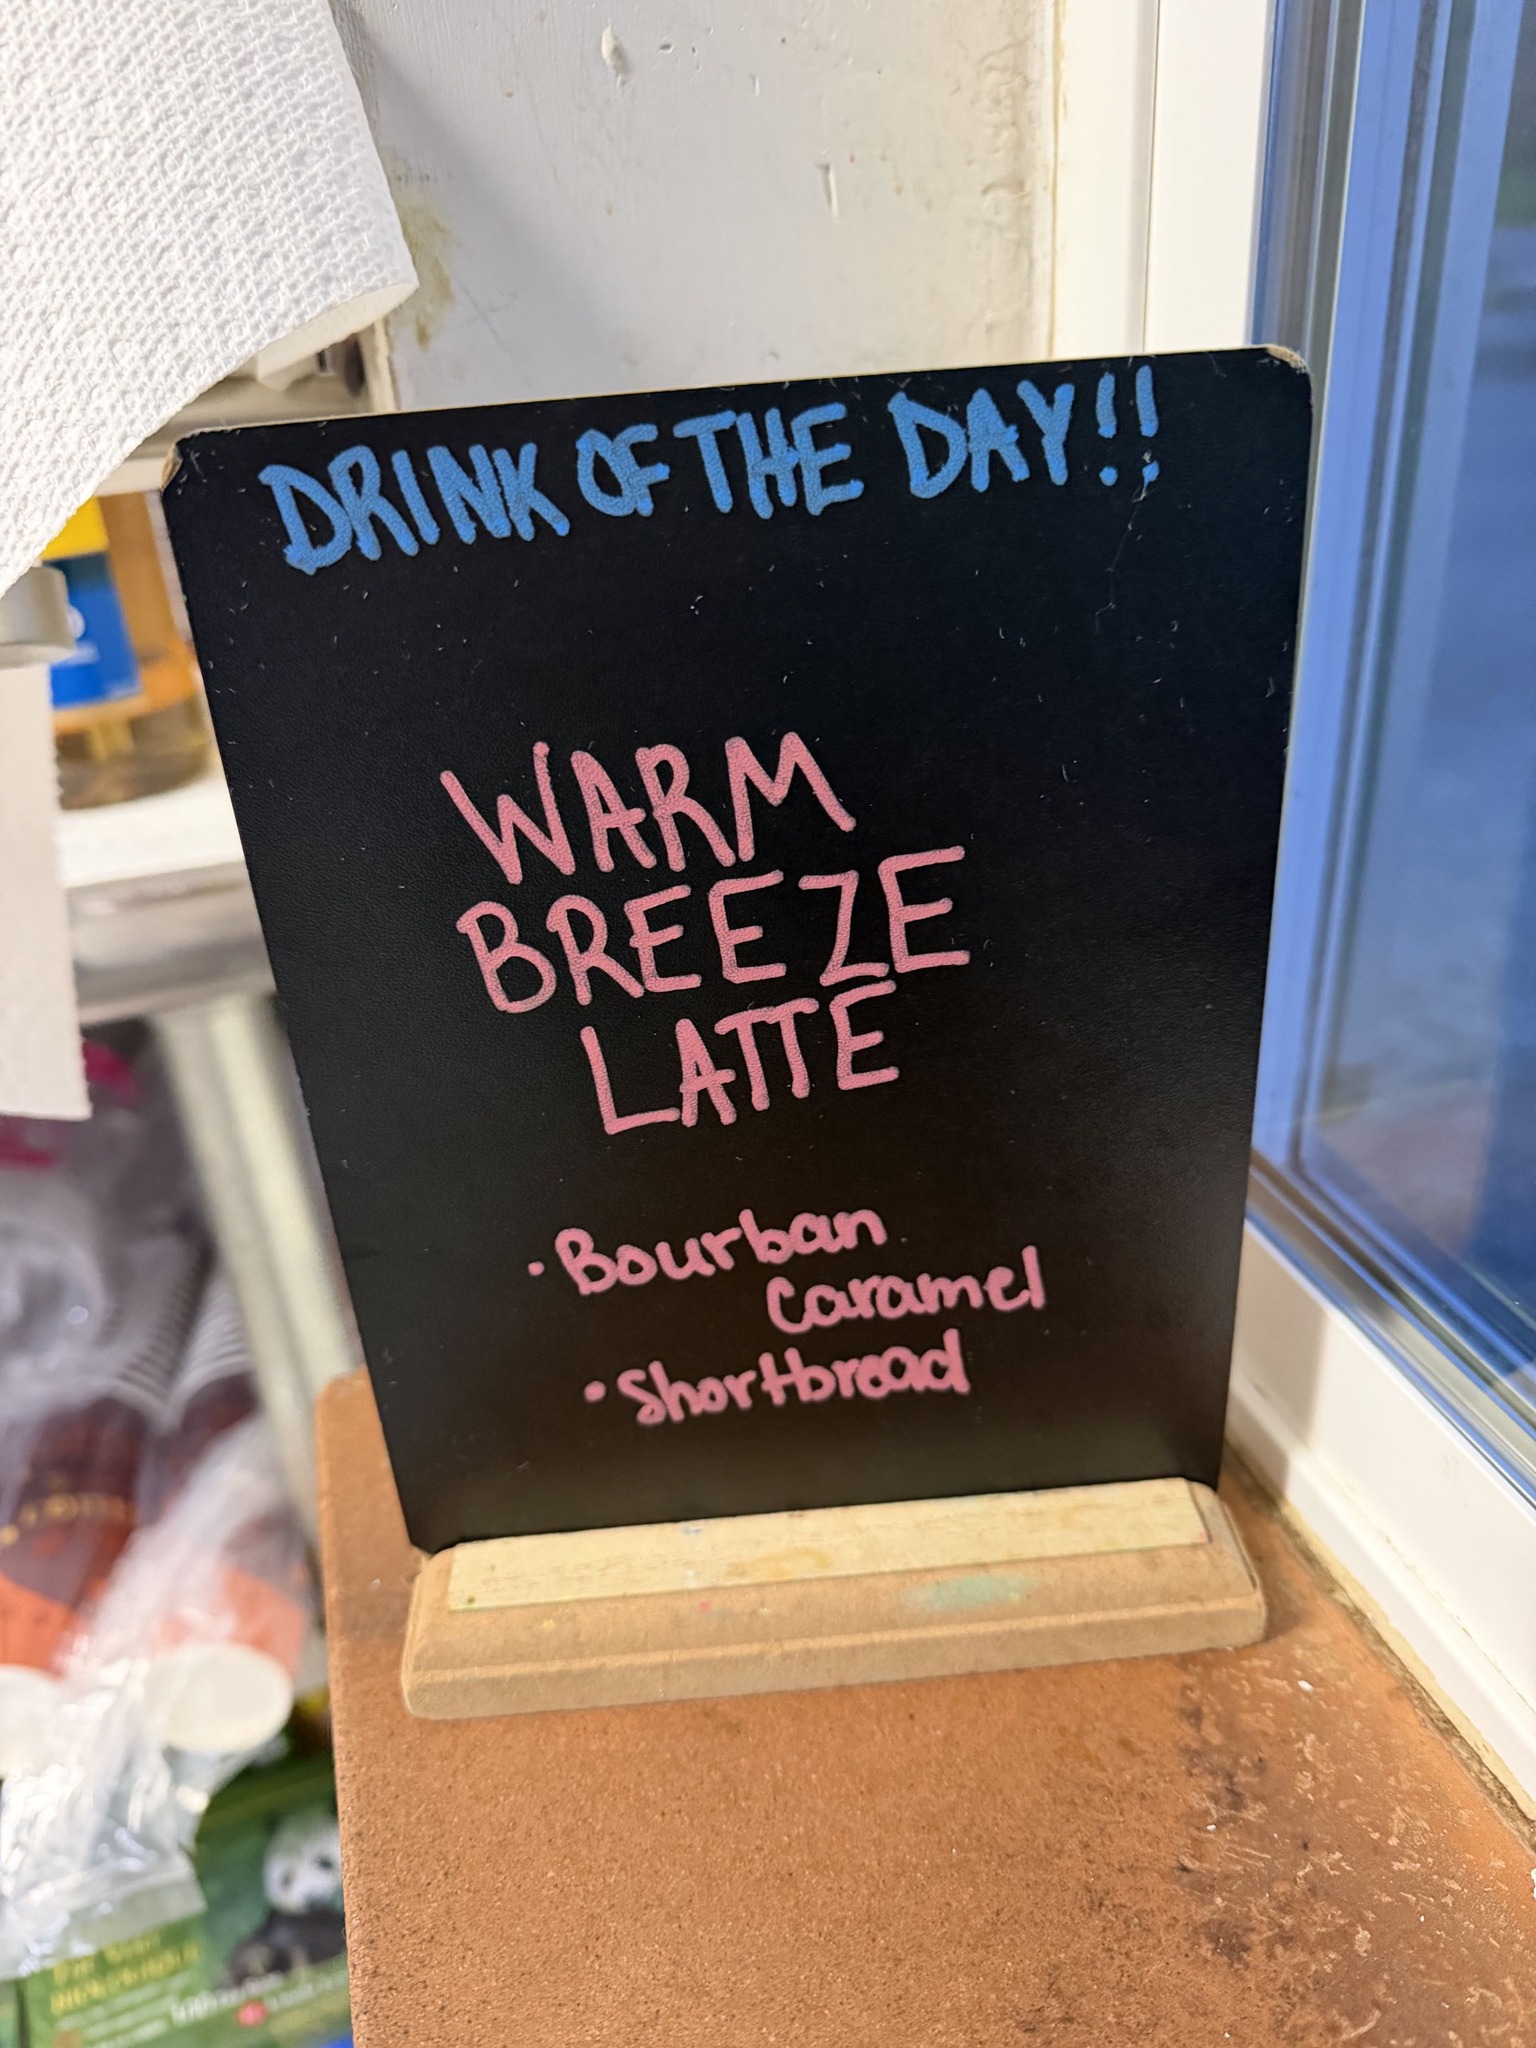 DRINK OF THE DAY!!
WARM
BREEZE
LATTE
· Bourban
Caramel
· Shortbread